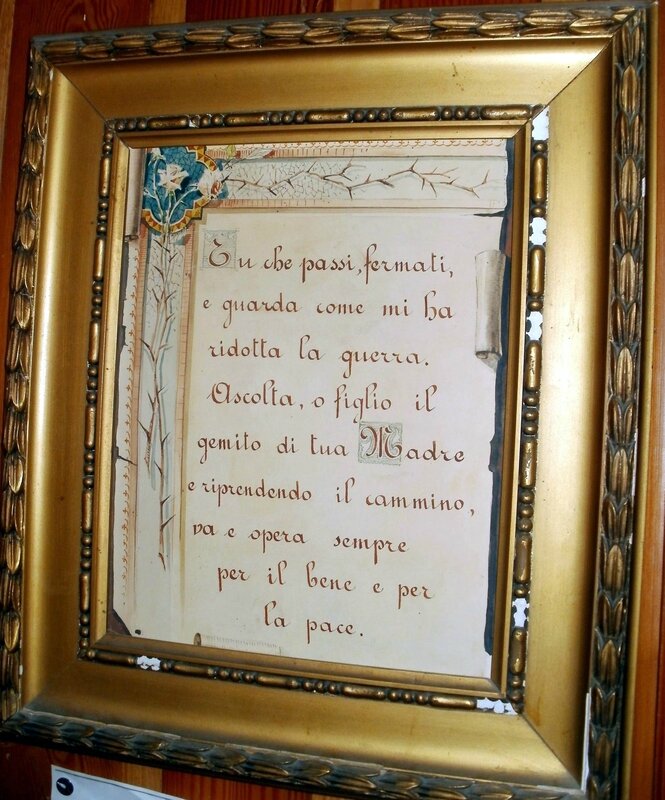 Tu che passi, fermati,
e guarda come mi ha
ridotta la guerra.
Ascolta, o figlio il
gemito di tua Madre
e riprendendo il cammino,
va e opera sempre
per il bene e per
la pace.